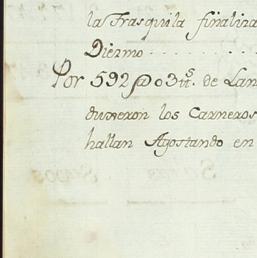 la Trasquila finaliza
Diezmo . . . . . . .
Por 592 @ 03 tt.s de Lan
duxeron los Carneros
hallan Agostando en